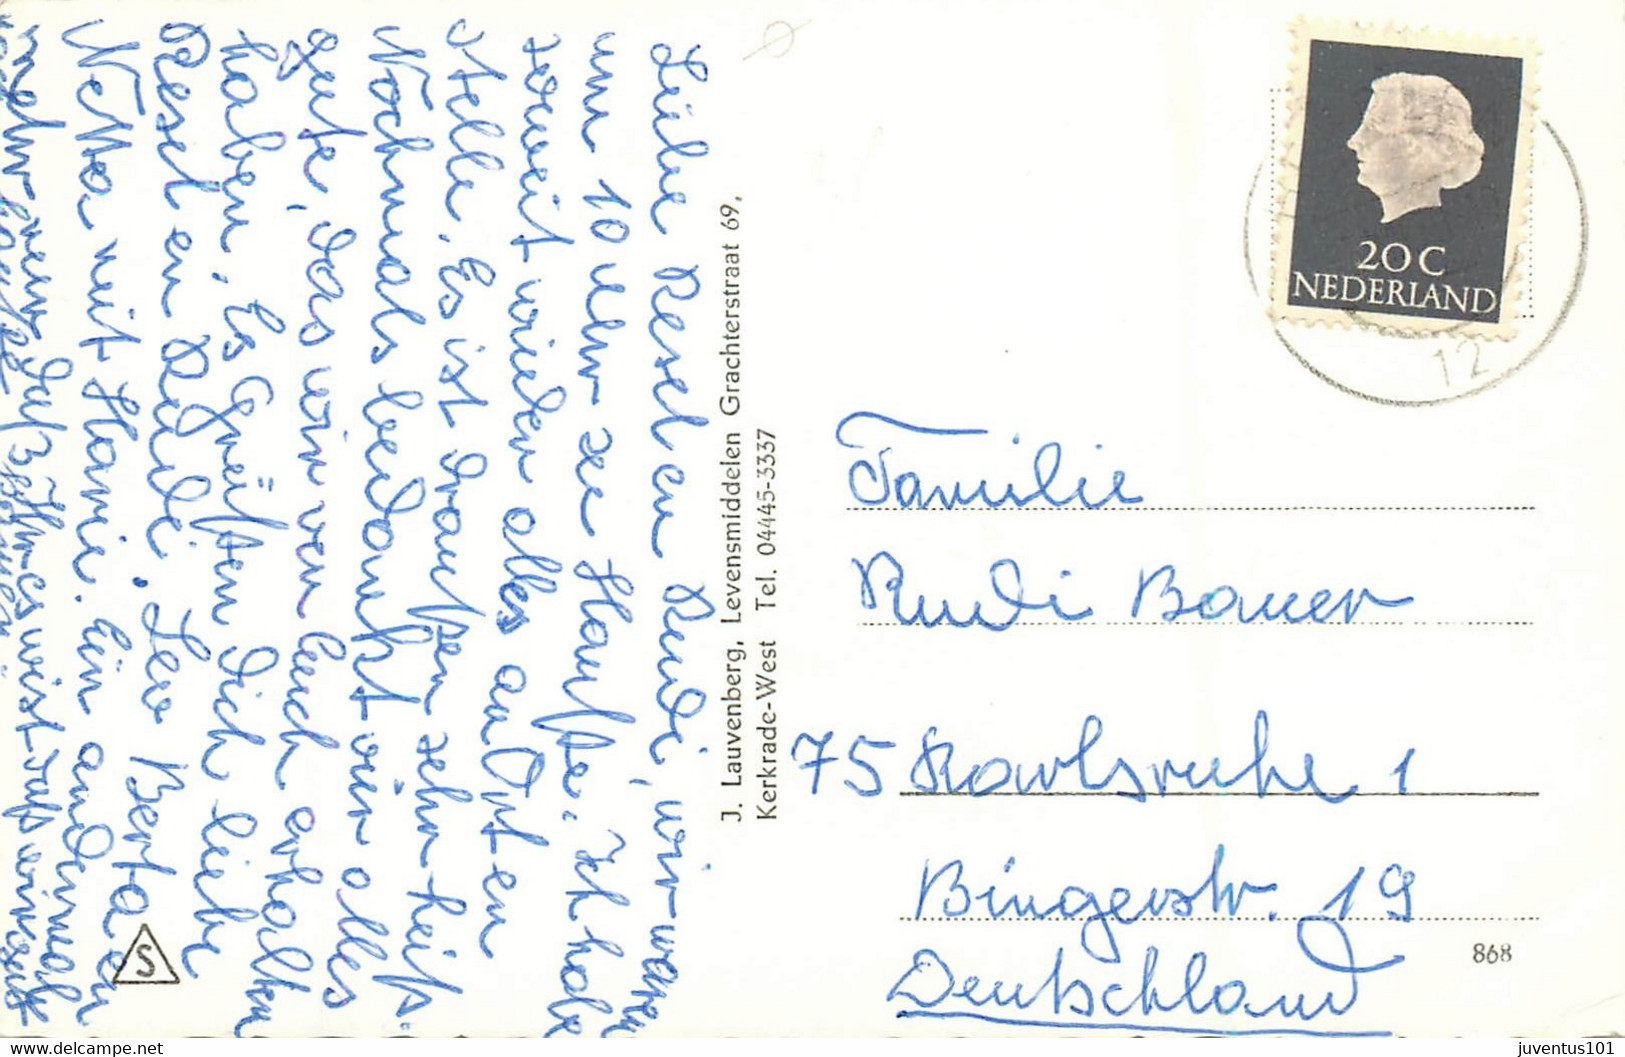 Lübe Resel en Rudi, wir waren
um 10 uhr ze Hauße. Ich habe
soweit wieder alles an Ort en
stelle. Es ist draußen sehr heiß.
Nochmals bedankt vür alles
gute, das wir ven Euch erhalten
haben. Es Grüßten Dich liebe
Resel en Rudi. Leo Berta en
Netta mit Harie. Ein andermal
mehr wen daß Ihr es wist daß wir gut
J. Lauvenberg, Levensmiddelen Grachterstraat 69,
Kerkrade-West Tel. 04445-3337
S
20 C
NEDERLAND
12
Familie
Rudi Bauer
75 Karlsruhe 1
Bingerstr. 19
Deutschland
868
https://www.delcampe.net
juventus101